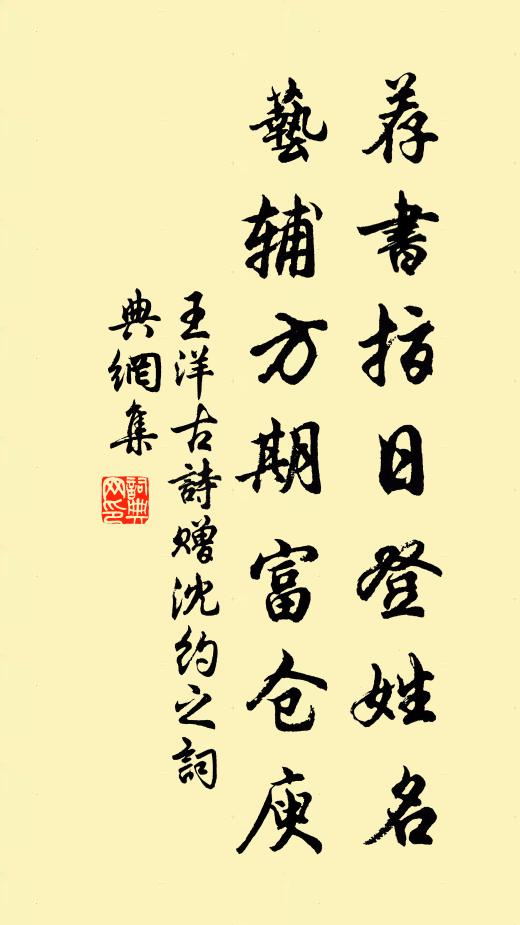 荐書指日登姓名
藝辅方期富仓庾
王洋古詩赠沈约之詞
典網集
詞典網印